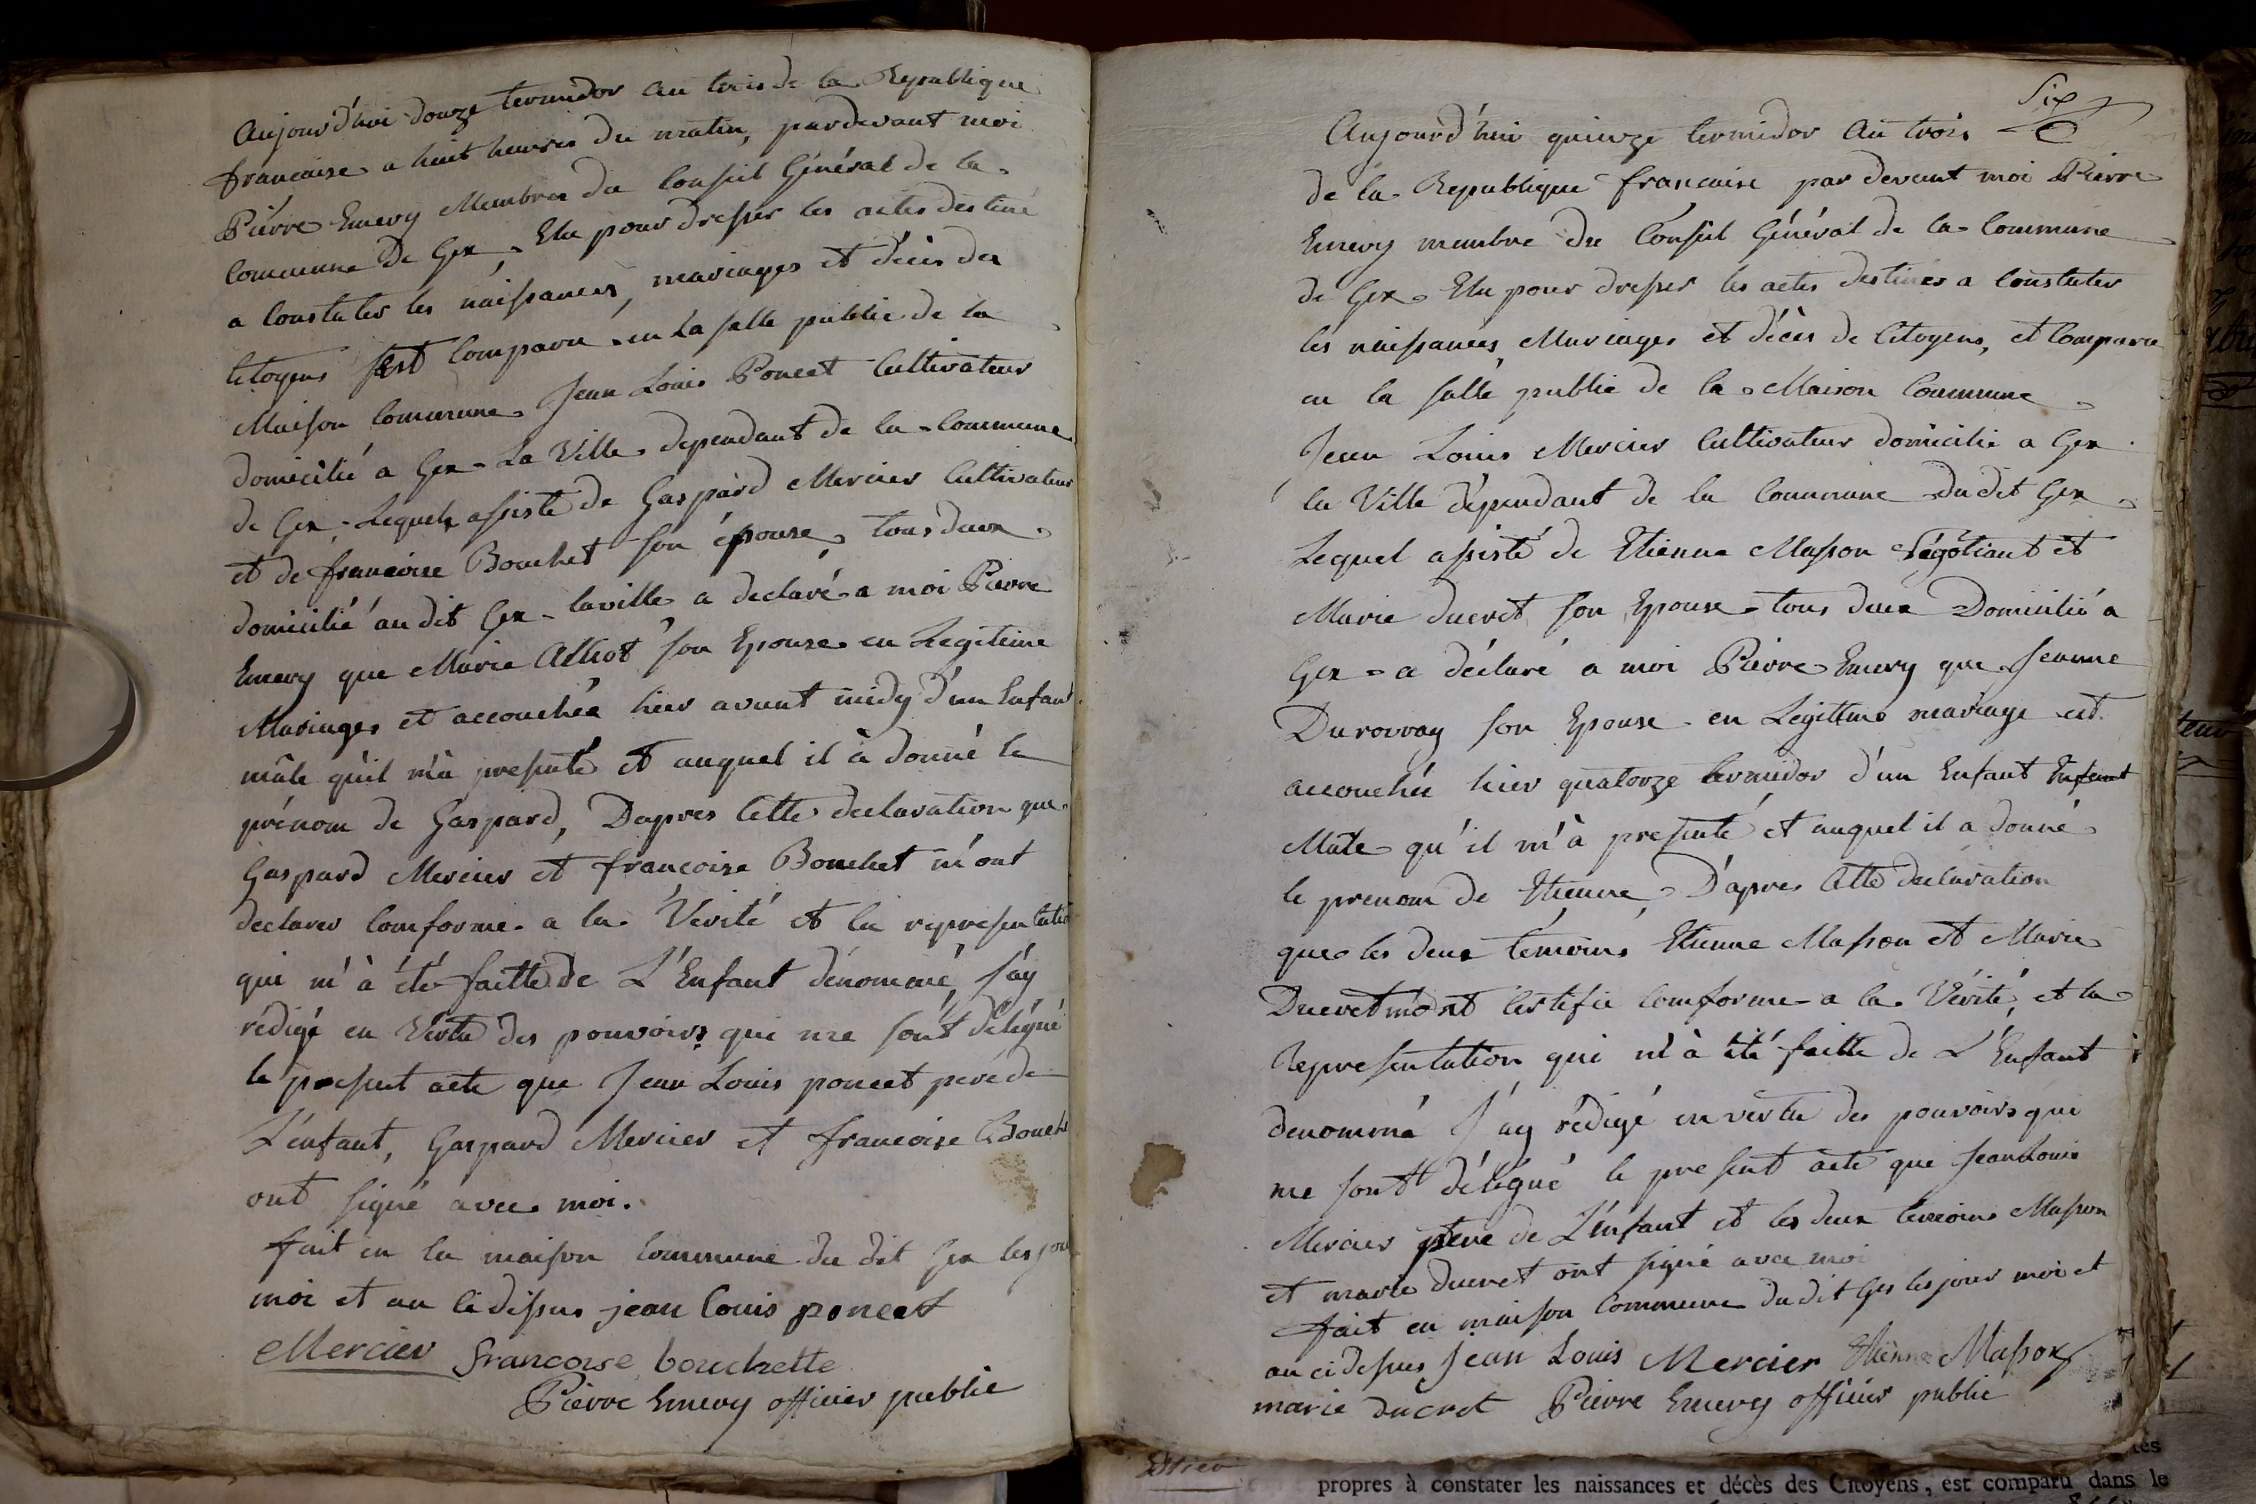 Aujourd'hui douze termidor an trois de la Republique
francaise a huit heures du matin, pardevant moi
Pierre Emery Membres du Conseil Général de la
Commune De Gex, Elu pour dresser les actes destiné
a Constater les naissances, mariages et décès des
Citoyens sest Comparu en La salle public de la
Maison Commune Jean Louis Poncet Cultivateur
domicilié a Gex La Ville dependant de la Commune
de Gex, Lequel assisté de Gaspard Mercier Cultivateur
et de francoise Bouchet son épouse tous deux
domicilié au dit Gex laville a declaré a moi Pierre
Emery que Marie son Epouse en Legitime
Mariages et accouchéé hier avant midy d'un Enfant
mâle qu'il m'à presenté et auquel il à donné le
prénom de Gaspard, Dapres Cette declaration que
Gaspard Mercier et francoise Bouchet m'ont
declarer Comforme a la Vérité et la representatio
qui m'à été faitte de L'Enfant dénommé, J'ay
rédigé en Vertu des pouvoirs qui me sont délégué
le present acte que Jean Louis poncet pere de
L'enfant, Gaspard Mercier et francoise Bouch
ont signé avec moi.
fait en la maison Commune du dit Gex les jou
moi et an ci dessus jean louis poncet
Mercier francoise bouchette
Pierre Emery officier public
Six
Aujourd'hui quinze termidor An trois
de la Republique francaise par devant moi Pierre
Emery membre du Conseil Général de la Commune
de Gex Elu pour dresser les actes destinés a Constater
les naissances, Mariages et décès de Citoyens, et Comparu
en la salle public de la Maison Commune
Jean Louis Mercier Cultivateur domicilié a Gex
la Ville dépendant de la Commune du dit Gex
Lequel assisté de Etienne Masson Négotiant et
Marie ducret son Epouse tous deux Domicilié a
Gex a déclaré a moi Pierre Emery que Jeanne
Durovray son Epouse en Legitime mariage est
accouchée hier quatorze termidor d'un Enfant Enfant
Mâle qu'il m'à presenté et auquel il a donné
le prenom de Etienne, D'apres Cette declaration
que les deux temoins Etienne Masson et Marie
Ducret m'ont Certifié Comforme a la Vérité, et la
Representation qui m'à été faitte de L'Enfant
denommé J'ay rédigé en vertu des pouvoirs qui
me sont délégué le present acte que Jean Louis
Mercier pere de L'enfant et les deux temoins Masson
et marie ducret ont signé avec moi
fait en maison Commune du dit Gex les jour moi et
an ci dessus Jean Louis Mercier Etienne Masson
marie ducret Pierre Emery officier public
propres à constater les naissances et décès des Citoyens, est comparu dans le